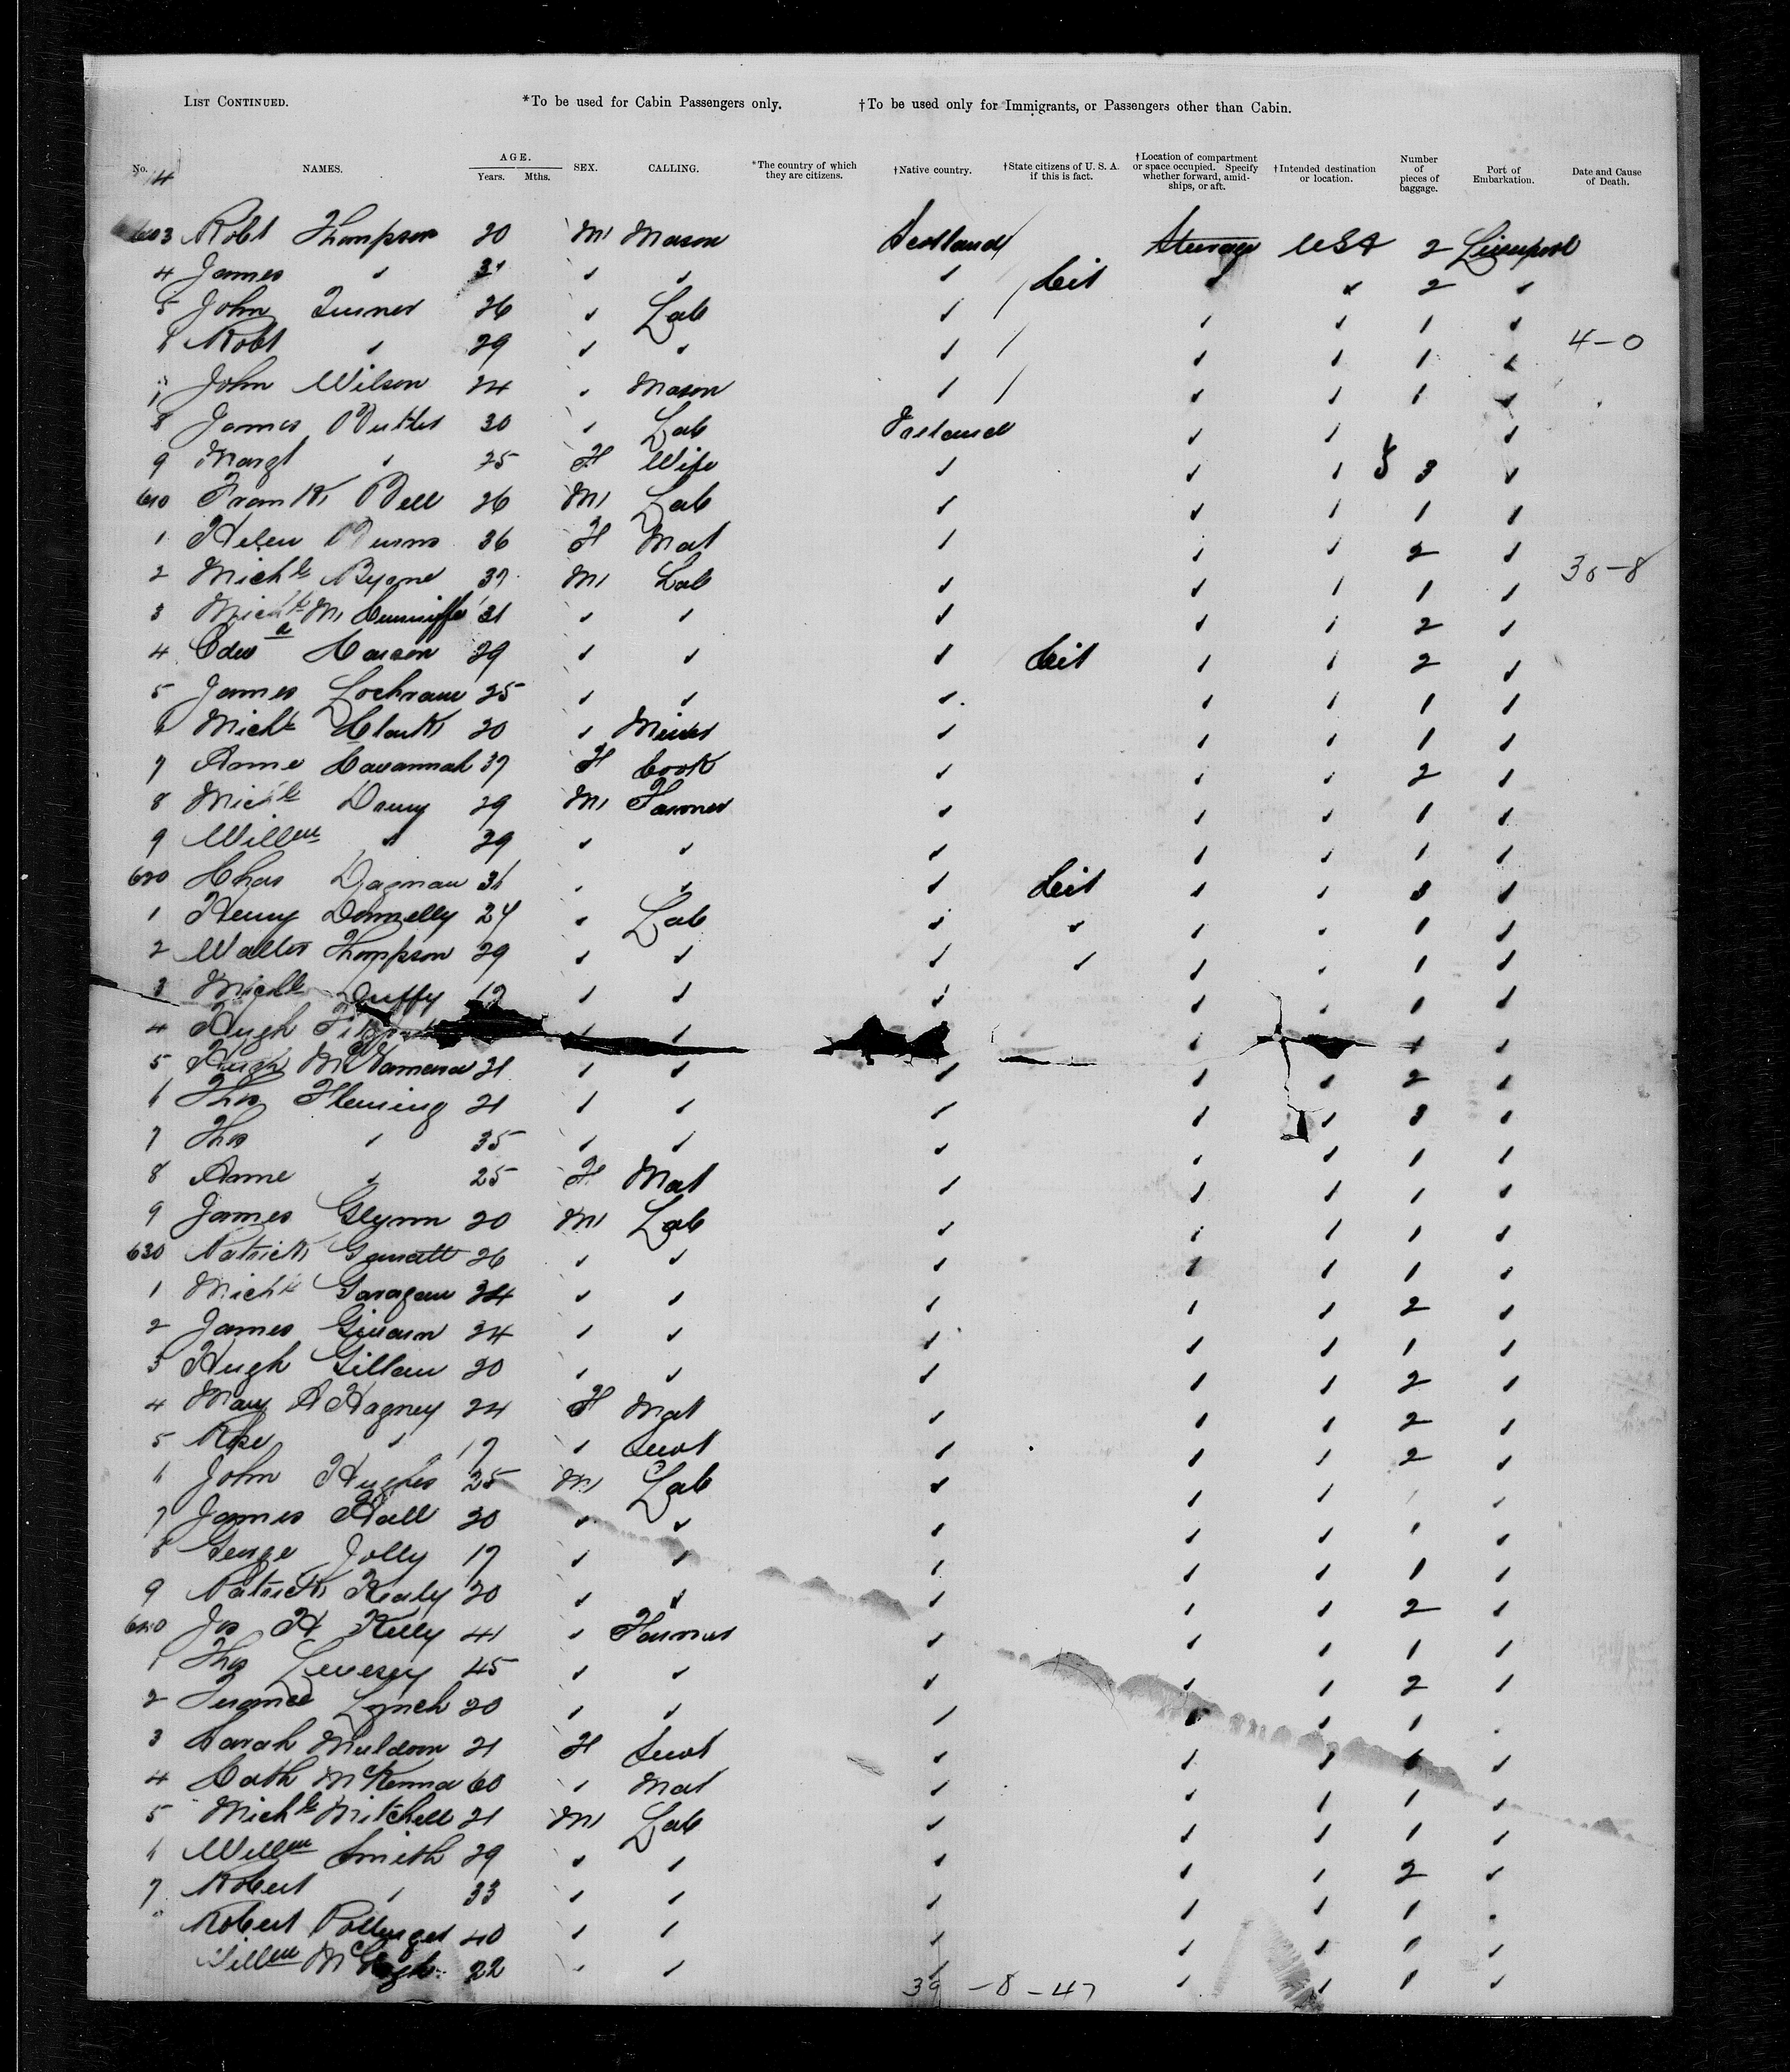 LIST CONTINUED. *To be used for Cabin Passengers only. †To be used only for Immigrants, or Passengers other than Cabin.
No. NAMES. AGE. Years. Mths. SEX. CALLING. *The country of which they are citizens. †Native country. †State citizens of U. S. A. if this is fact. †Location of compartment or space occupied. Specify whether forward, amidships, or aft. †Intended destination or location. Number of pieces of baggage. Port of Embarkation. Date and Cause of Death.
14
603 Robt Thompson 20 M Mason Scotland / Steerage USA 2 Liverpool
4 James ✓ 31 ✓ ✓ ✓ / Cit ✓ ✓ 2 ✓
5 John Turner 26 ✓ Lab ✓ / ✓ ✓ 1 ✓
6 Robt ✓ 29 ✓ ✓ ✓ / ✓ ✓ 1 ✓ 4-0
7 John Wilson 24 ✓ Mason ✓ / ✓ ✓ 1 ✓
8 James Butler 30 ✓ Lab Ireland ✓ ✓ ✓
9 Margt ✓ 25 F Wife ✓ ✓ ✓ } 3 ✓
610 Frank Bell 26 M Lab ✓ ✓ ✓ 1 ✓
1 Helen Burns 36 F Mat ✓ ✓ ✓ 2 ✓
2 Michl Byrne 37 M Lab ✓ ✓ ✓ 1 ✓ 35-8
3 Michl M Cunniffe 31 ✓ ✓ ✓ ✓ ✓ 2 ✓
4 Edwd Carson 29 ✓ ✓ ✓ Cit ✓ ✓ 2 ✓
5 James Lochrane 25 ✓ ✓ ✓ ✓ ✓ 1 ✓
6 Michl Clark 20 ✓ Miner ✓ ✓ ✓ 1 ✓
7 Anne Cavannah 37 F Cook ✓ ✓ ✓ 2 ✓
8 Michl Danny 29 M Farmer ✓ ✓ ✓ 1 ✓
9 Willm ✓ 29 ✓ ✓ ✓ ✓ ✓ 1 ✓
620 Chas Dagnan 31 ✓ ✓ ✓ Cit ✓ ✓ 3 ✓
1 Henry Donnelly 24 ✓ Lab ✓ ✓ ✓ ✓ 1 ✓
2 Walter Thompson 29 ✓ ✓ ✓ ✓ ✓ ✓ 1 ✓
3 Michl Duffy 19 ✓ ✓ ✓ ✓ ✓ 1 ✓
4 Hugh ✓ ✓ ✓ 1 ✓
5 Hugh McNamara 21 ✓ ✓ ✓ ✓ ✓ 2 ✓
6 Thos Fleming 21 ✓ ✓ ✓ ✓ ✓ 3 ✓
7 Thos ✓ 35 ✓ ✓ ✓ ✓ ✓ 1 ✓
8 Anne ✓ 25 F Mat ✓ ✓ ✓ 1 ✓
9 James Glynn 20 M Lab ✓ ✓ ✓ 1 ✓
630 Patrick Garrett 26 ✓ ✓ ✓ ✓ ✓ 1 ✓
1 Michl Garagan 24 ✓ ✓ ✓ ✓ ✓ 2 ✓
2 James 24 ✓ ✓ ✓ ✓ ✓ 1 ✓
3 Hugh Gillan 20 ✓ ✓ ✓ ✓ ✓ 2 ✓
4 Mary A Hagney 24 F Mat ✓ ✓ ✓ 2 ✓
5 Rose ✓ 17 ✓ Servt ✓ ✓ ✓ 2 ✓
6 John Hughes 25 M Lab ✓ ✓ ✓ 1 ✓
7 James Hall 20 ✓ ✓ ✓ ✓ ✓ 1 ✓
8 George Jolly 17 ✓ ✓ ✓ ✓ ✓ 1 ✓
9 Patrick Kealy 20 ✓ ✓ ✓ ✓ ✓ 2 ✓
640 Jos H Kelly 41 ✓ Farmer ✓ ✓ ✓ 1 ✓
1 Thos Livesey 45 ✓ ✓ ✓ ✓ ✓ 2 ✓
2 Terance Lynch 20 ✓ ✓ ✓ ✓ ✓ 1 ✓
3 Sarah Muldoon 21 F Servt ✓ ✓ ✓ 1 ✓
4 Cath McKenna 60 ✓ Mat ✓ ✓ ✓ 1 ✓
5 Michl Mitchell 21 M Lab ✓ ✓ ✓ 1 ✓
6 Willm Smith 29 ✓ ✓ ✓ ✓ ✓ 2 ✓
7 Robert ✓ 33 ✓ ✓ ✓ ✓ ✓ 1 ✓
Robert 40 ✓ ✓ ✓ ✓ ✓ 1 ✓
Willm 22 ✓ ✓ ✓ ✓ ✓ 1 ✓
39 - 8 - 47